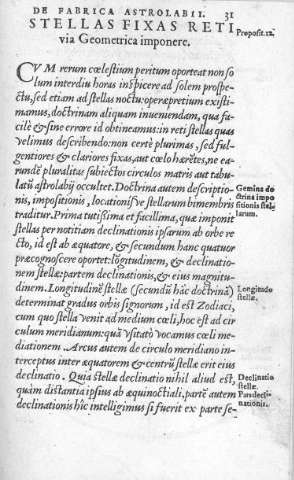 DE FABRICA ASTROLABII. 31
STELLAS FIXAS RETI
via Geometrica imponere.
Proposit.12.
CVM rerum cœlestium peritum oporteat non so
lum interdiu horas inspicere ad solem prospe-
ctu, sed etiam ad stellas noctu: operæpretium existi-
mamus, doctrinam aliquam inueniendam, qua fa-
cilè & sine errore id obtineamus: in reti stellas quas
velimus describendo: non certè plurimas, sed ful-
gentiores & clariores fixas, aut cœlo hærētes, ne ea-
rundē pluralitas subiectos circulos matris aut tabu-
lāū astrolabij occultet. Doctrina autem descriptio-
nis, impositionis, locationisve stellarum bimembris
traditur. Prima tutissima et facillima, quæ imponit
stellas per notitiam declinationis ipsarum ab orbe re-
cto, id est ab æquatore, & secundum hanc quatuor
præcognoscere oportet: lōgitudinem, & declinatio-
nem stellæ: partem declinationis, & eius magnitu-
dinem. Longitudinē stellæ (secundū hāc doctrinā)
determinat gradus orbis signorum, id est Zodiaci,
cum quo stella venit ad medium cœli, hoc est ad cir
culum meridianum: quā vsitatò vocamus cœli me-
diationem. Arcus autem de circulo meridiano in-
terceptus inter æquatorem & centrū stellæ erit eius
declinatio. Quia stellæ declinatio nihil aliud est,
quàm distantia ipsius ab æquinoctiali, partē autem
declinationis hîc intelligimus si fuerit ex parte se-
Gemina do
ctrina impo
sitionis stel-
larum.
Longitudo
stellæ.
Declinatio
stellæ.
Pars decli-
nationis.